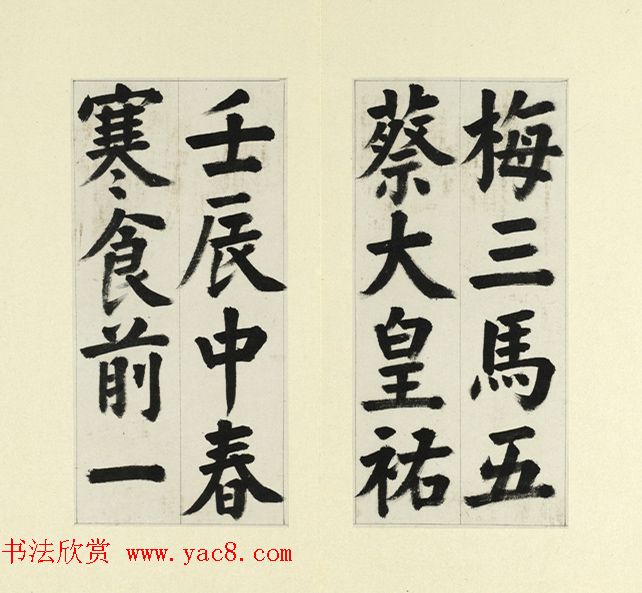 梅三馬五
蔡大皇祐
壬辰中春
寒食前一
书法欣赏 www.yac8.com